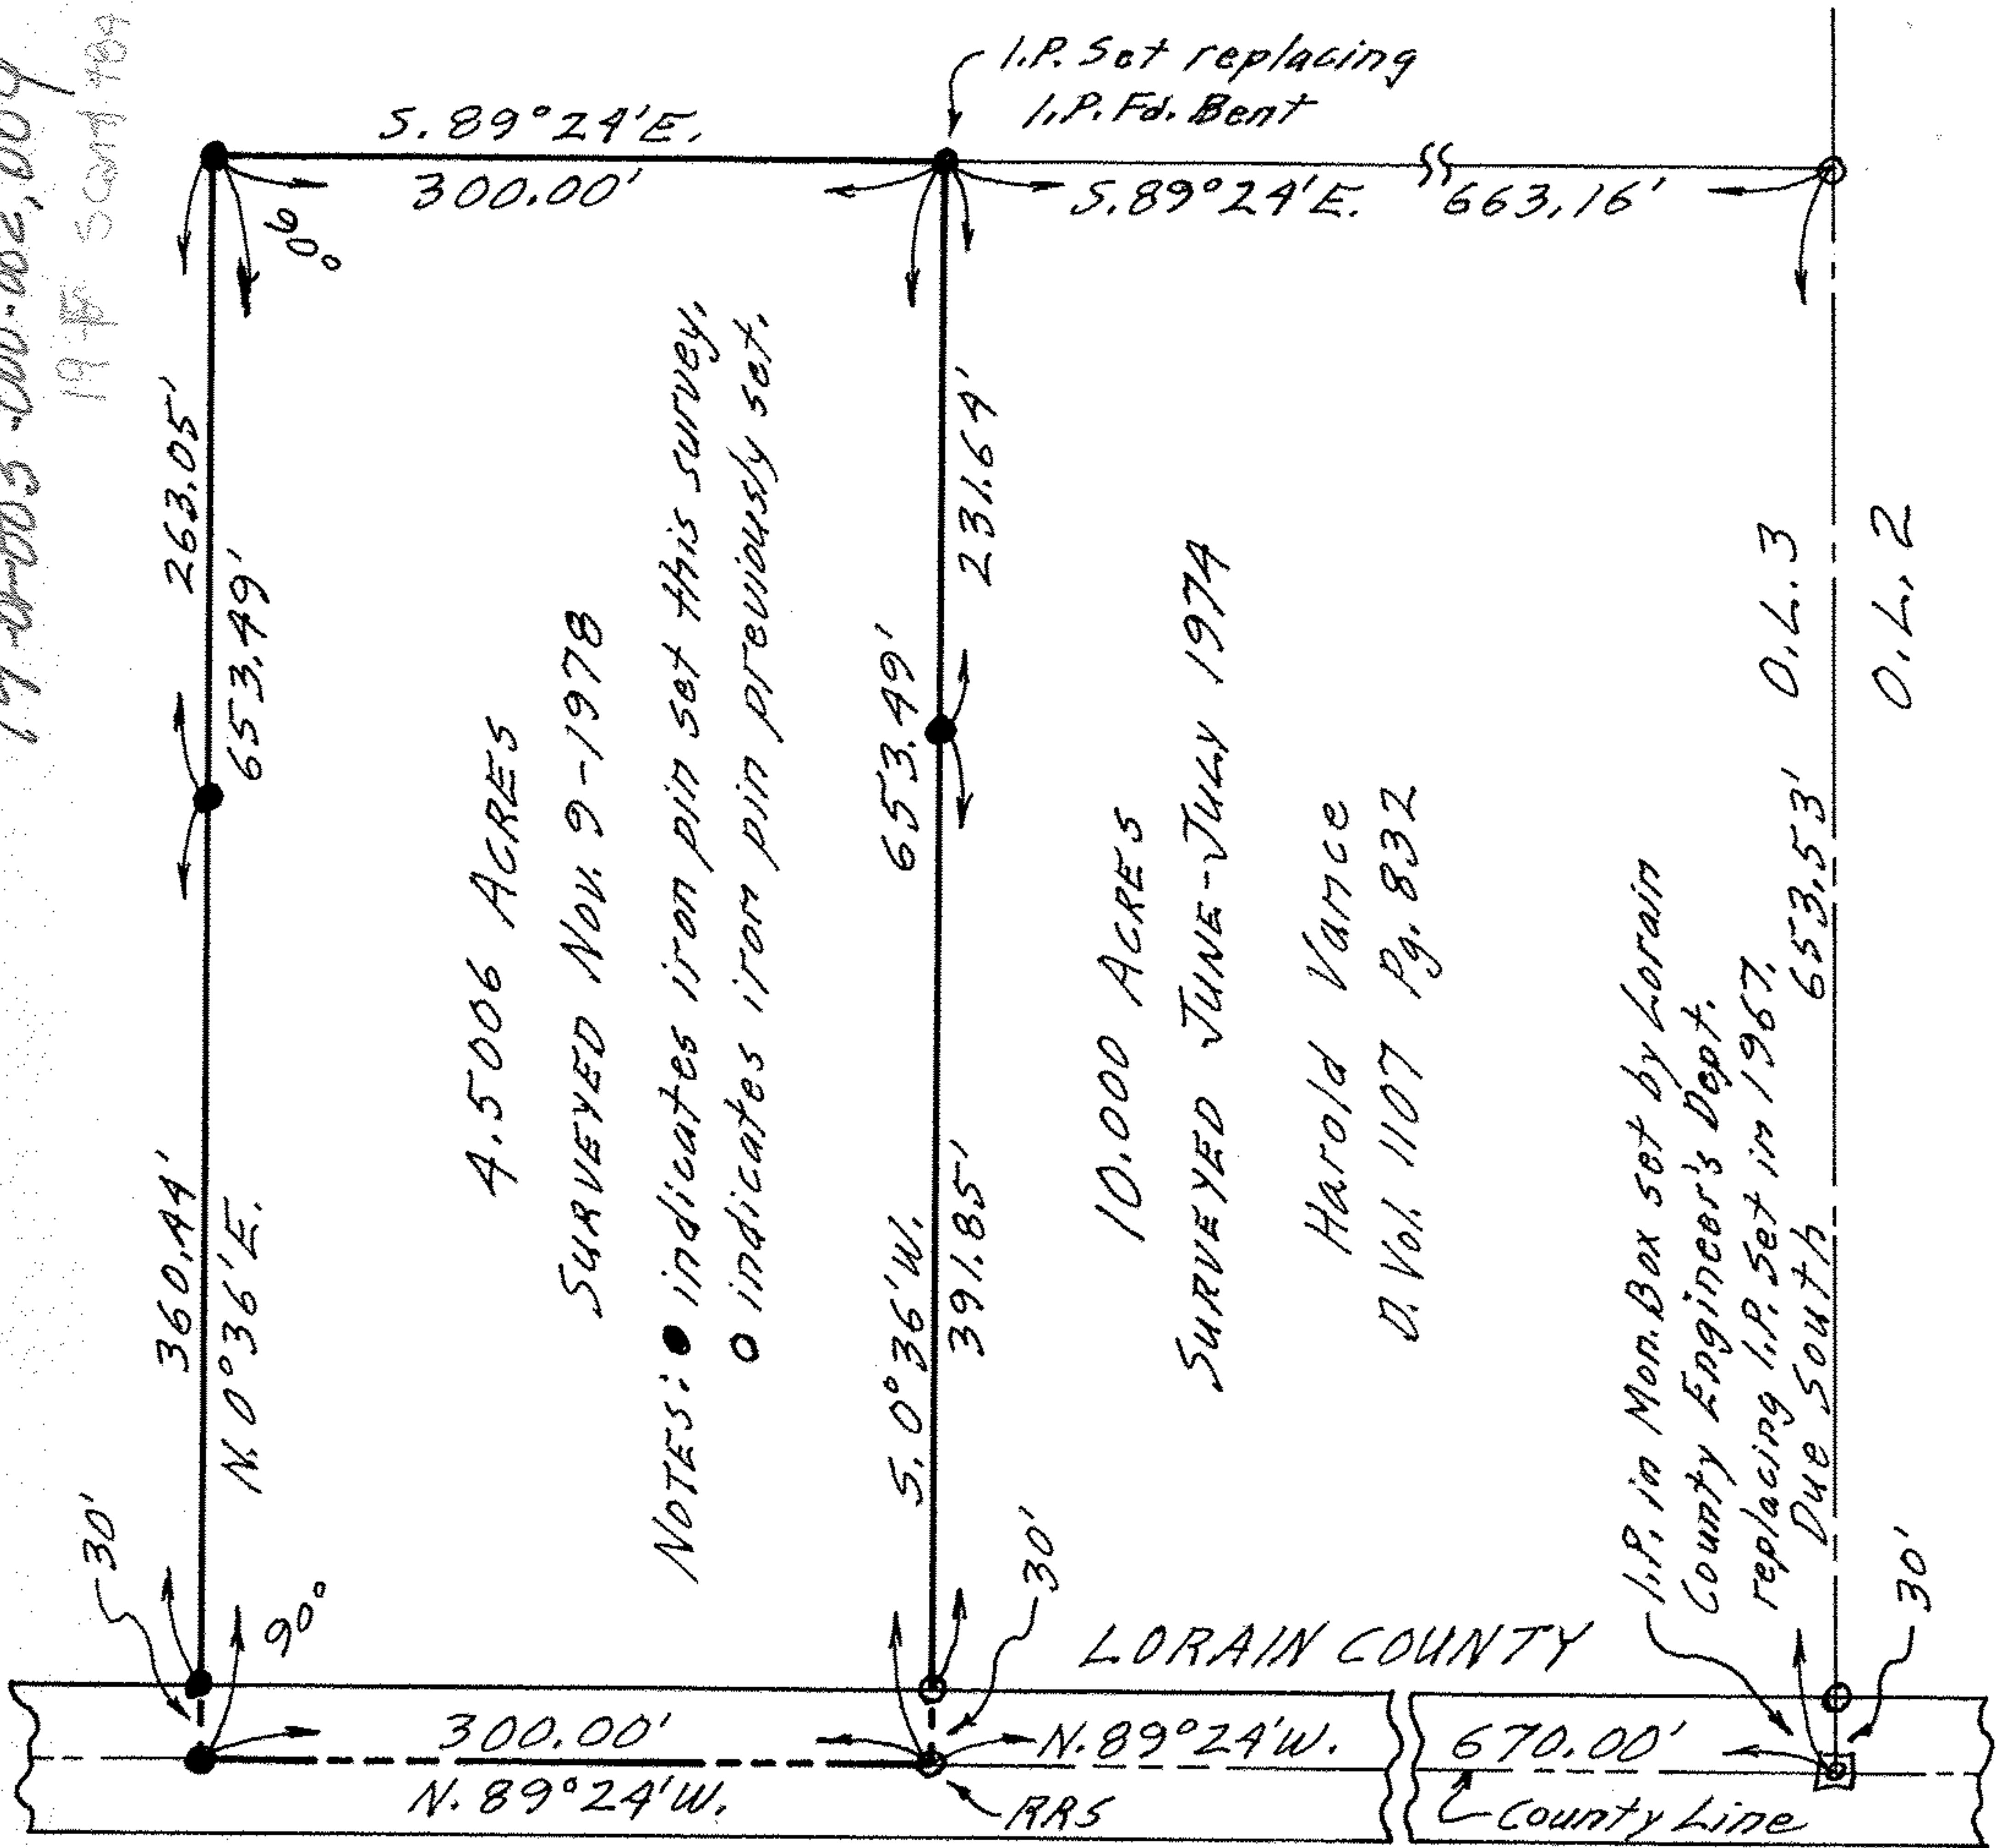 I.P. Set replacing
I.P. Fd. Bent
S. 89° 24' E.
300.00'
S. 89° 24' E. 663.16'
90°
263.05'
653.49'
360.44'
N. 0° 36' E.
30'
90°
4.5006 ACRES
SURVEYED NOV. 9-1978
NOTES: ● indicates iron pin set this survey.
○ indicates iron pin previously set.
231.64'
653.49'
S. 0° 36' W.
391.85'
30'
10.000 ACRES
SURVEYED JUNE-JULY 1974
Harold Vance
D. Vol. 1107 Pg. 832
I.P. in Mon. Box set by Lorain
County Engineer's Dept.
replacing I.P. Set in 1967.
Due South 653.53' O.L. 3
O.L. 2
30'
LORAIN COUNTY
300.00'
N. 89° 24' W.
N. 89° 24' W.
670.00'
RRS
County Line